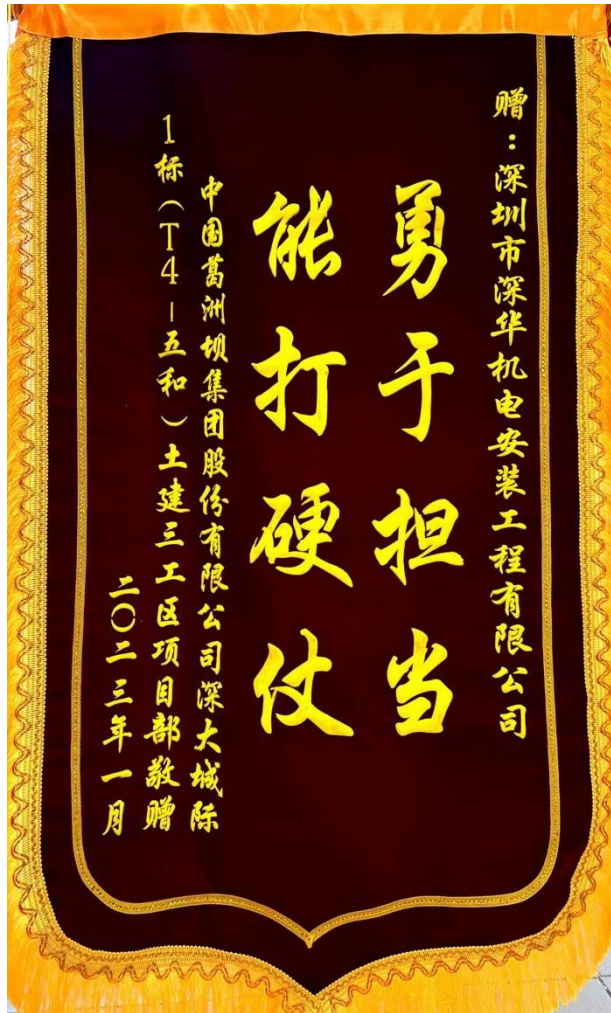 赠：深圳市深华机电安装工程有限公司
勇于担当
能打硬仗
中国葛洲坝集团股份有限公司深大城际
1标（T4-五和）土建三工区项目部敬赠
二〇二三年一月